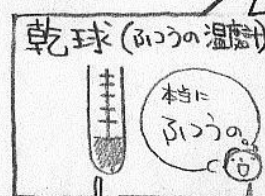 乾球(ふつうの温度計)
本当に
ふつうの。